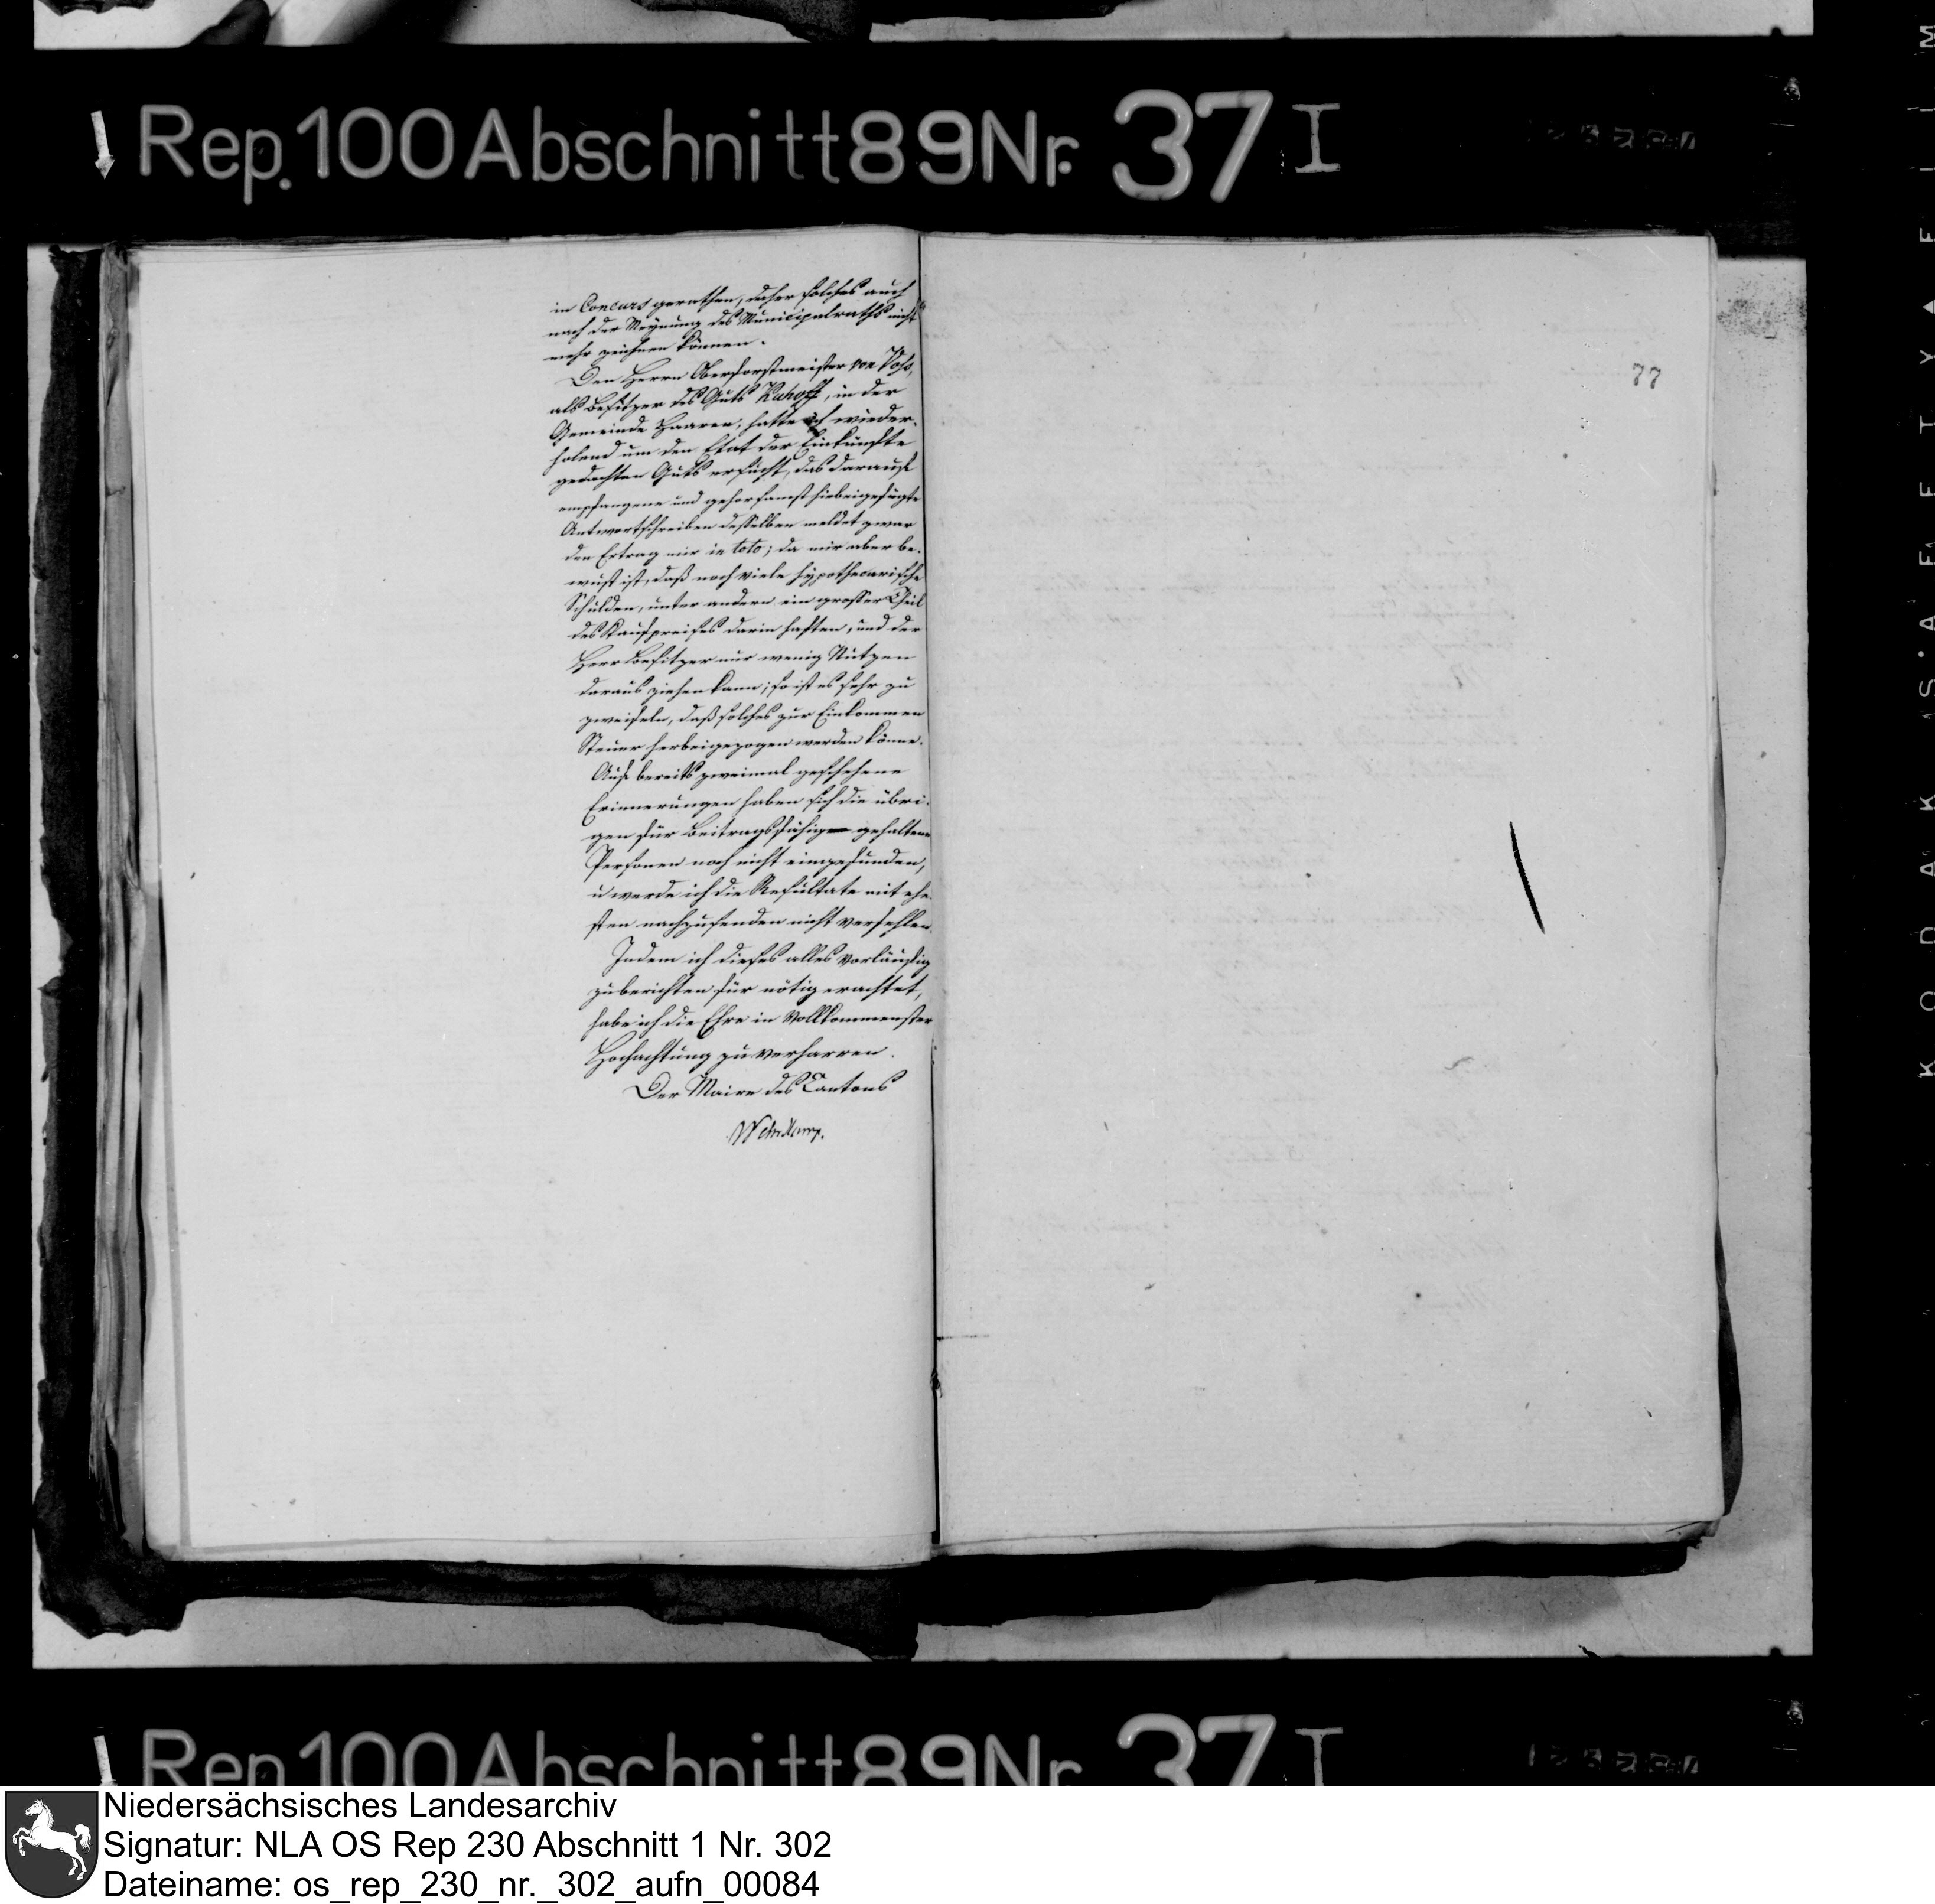 Rep. 100 Abschnitt 89 Nr. 37 I
in Concurs gerathen, daher solches auch
nach der Meynung des Municipalraths nicht
mehr zeichnen können.
Den Herrn Oberforstmeister von Voss,
als Besitzer des Guts Kuhoff, in der
Gemeinde Haaren, hatte ich wieder-
holend um den Etat der Einkünfte
gedachten Guts ersucht, das darauf
empfangene und gehorsamst hiebeigefügte
Antwortschreiben desselben meldet zwar
den Ertrag nur in toto; da mir aber be-
wust ist, daß noch viele hypothecarische
Schulden, unter andern ein grosser Theil
des Kaufpreises darin haften, und der
Herr Besitzer nur wenig Nutzen
daraus ziehen kann; so ist es sehr zu
zweifeln, daß solches zur Einkommen
Steuer herbeigezogen werden könne.
Auf bereits zweimal geschehene
Erinnerungen haben sich die übri-
gen für Beitragsfähig gehaltene
Personen noch nicht eingefunden,
u werde ich die Resultate mit ehe-
sten nachzusenden nicht verfehlen.
Indem ich dieses alles vorläufig
zuberichten für nötig erachtet,
habe ich die Ehre in vollkommenster
Hochachtung zu verharren.
Der Maire des Cantons
77
Rep. 100 Abschnitt 89 Nr. 37 I
KODAK SAFETY FILM
Niedersächsisches Landesarchiv
Signatur: NLA OS Rep 230 Abschnitt 1 Nr. 302
Dateiname: os_rep_230_nr._302_aufn_00084